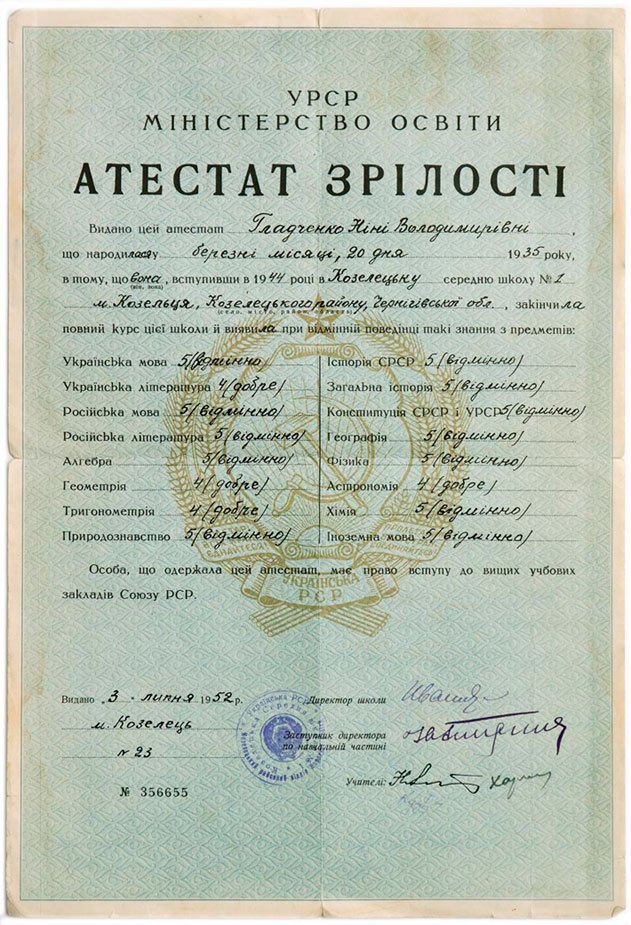 УРСР
МІНІСТЕРСТВО ОСВІТИ
АТЕСТАТ ЗРІЛОСТІ
Видано цей атестат Гладченко Ніні Володимирівні,
що народилася у березні місяці, 20 дня 1935 року,
в тому, що вона, вступивши в 1944 році в Козелецьку середню школу № 1
(він, вона)
м. Козельця, Козелецького району, Чернігівської обл., закінчила
(село, місто, район, область)
повний курс цієї школи й виявила при відмінній поведінці такі знання з предметів:
Українська мова 5 (відмінно) Історія СРСР 5 (відмінно)
Українська література 4 (добре) Загальна історія 5 (відмінно)
Російська мова 5 (відмінно) Конституція СРСР і УРСР 5 (відмінно)
Російська література 5 (відмінно) Географія 5 (відмінно)
Алгебра 5 (відмінно) Фізика 5 (відмінно)
Геометрія 4 (добре) Астрономія 4 (добре)
Тригонометрія 4 (добре) Хімія 5 (відмінно)
Природознавство 5 (відмінно) Іноземна мова 5 (відмінно)
УКРАЇНСЬКА
РСР
Особа, що одержала цей атестат, має право вступу до вищих учбових
закладів Союзу РСР.
Видано „3„ липня 1952 р. Директор школи
м. Козелець
Заступник директора
по навчальній частині
№ 23
Учителі:
№ 356655